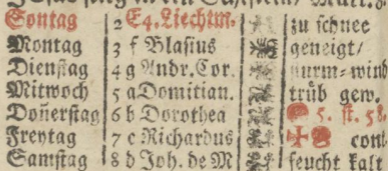 Sontag 2 E 4. Liechtm. zu schnee
Montag 3 f Blasius geneigt/
Dienstag 4 g Andr. Cor. wind
Mitwoch 5 a Domitian. trüb gew.
Doñerstag 6 b Dorothea 5. st. 58.
Freytag 7 c Richardus
Samstag 8 d Joh. de M feucht kalt